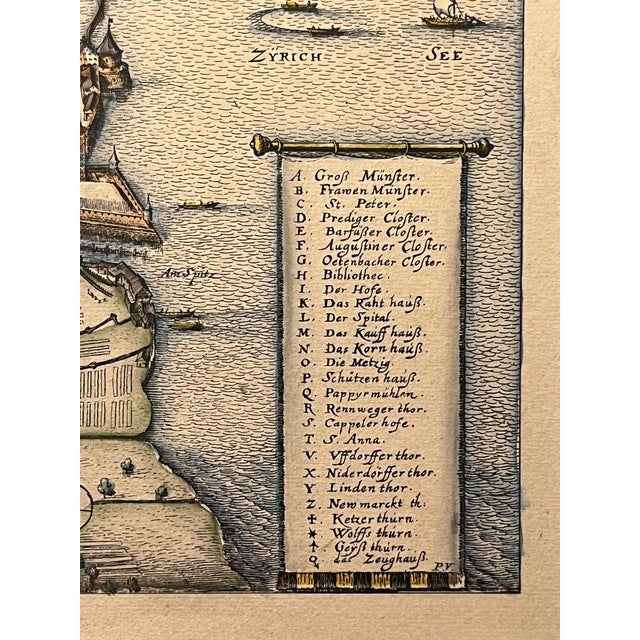 ZŸRICH SEE
Am Spitz
A. Groß Münster.
B. Frawen Münster.
C. St. Peter.
D. Prediger Closter.
E. Barfüßer Closter.
F. Augustiner Closter.
G. Oetenbacher Closter.
H. Bibliothec.
I. Der Hofe.
K. Das Raht hauß.
L. Der Spital.
M. Das Kauff hauß.
N. Das Korn hauß.
O. Die Metzig.
P. Schützen hauß.
Q. Pappyrmühlen.
R. Rennweger thor.
S. Cappeler hofe.
T. S. Anna.
V. Vffdorffer thor.
X. Niderdörffer thor.
Y. Linden thor.
Z. Newmarckt th:
✠. Ketzer thurn.
✶. Wolffs thurn.
↑. Geyß thurn.
Q. das Zeughauß.
P.V